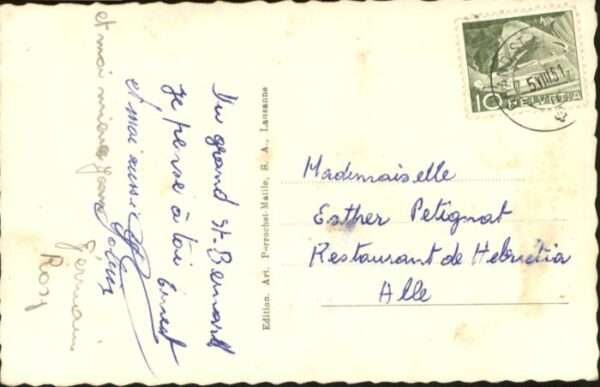 Du grand St-Bernard
je pense à toi Ernest
et moi aussi
et moi
Germain
Rosy
Edition. Art. Perrochet-Matile, S. A., Lausanne
10
HELVETIA
5.VIII.51
Mademoiselle
Esther Petignat
Restaurant de Helvétia
Alle